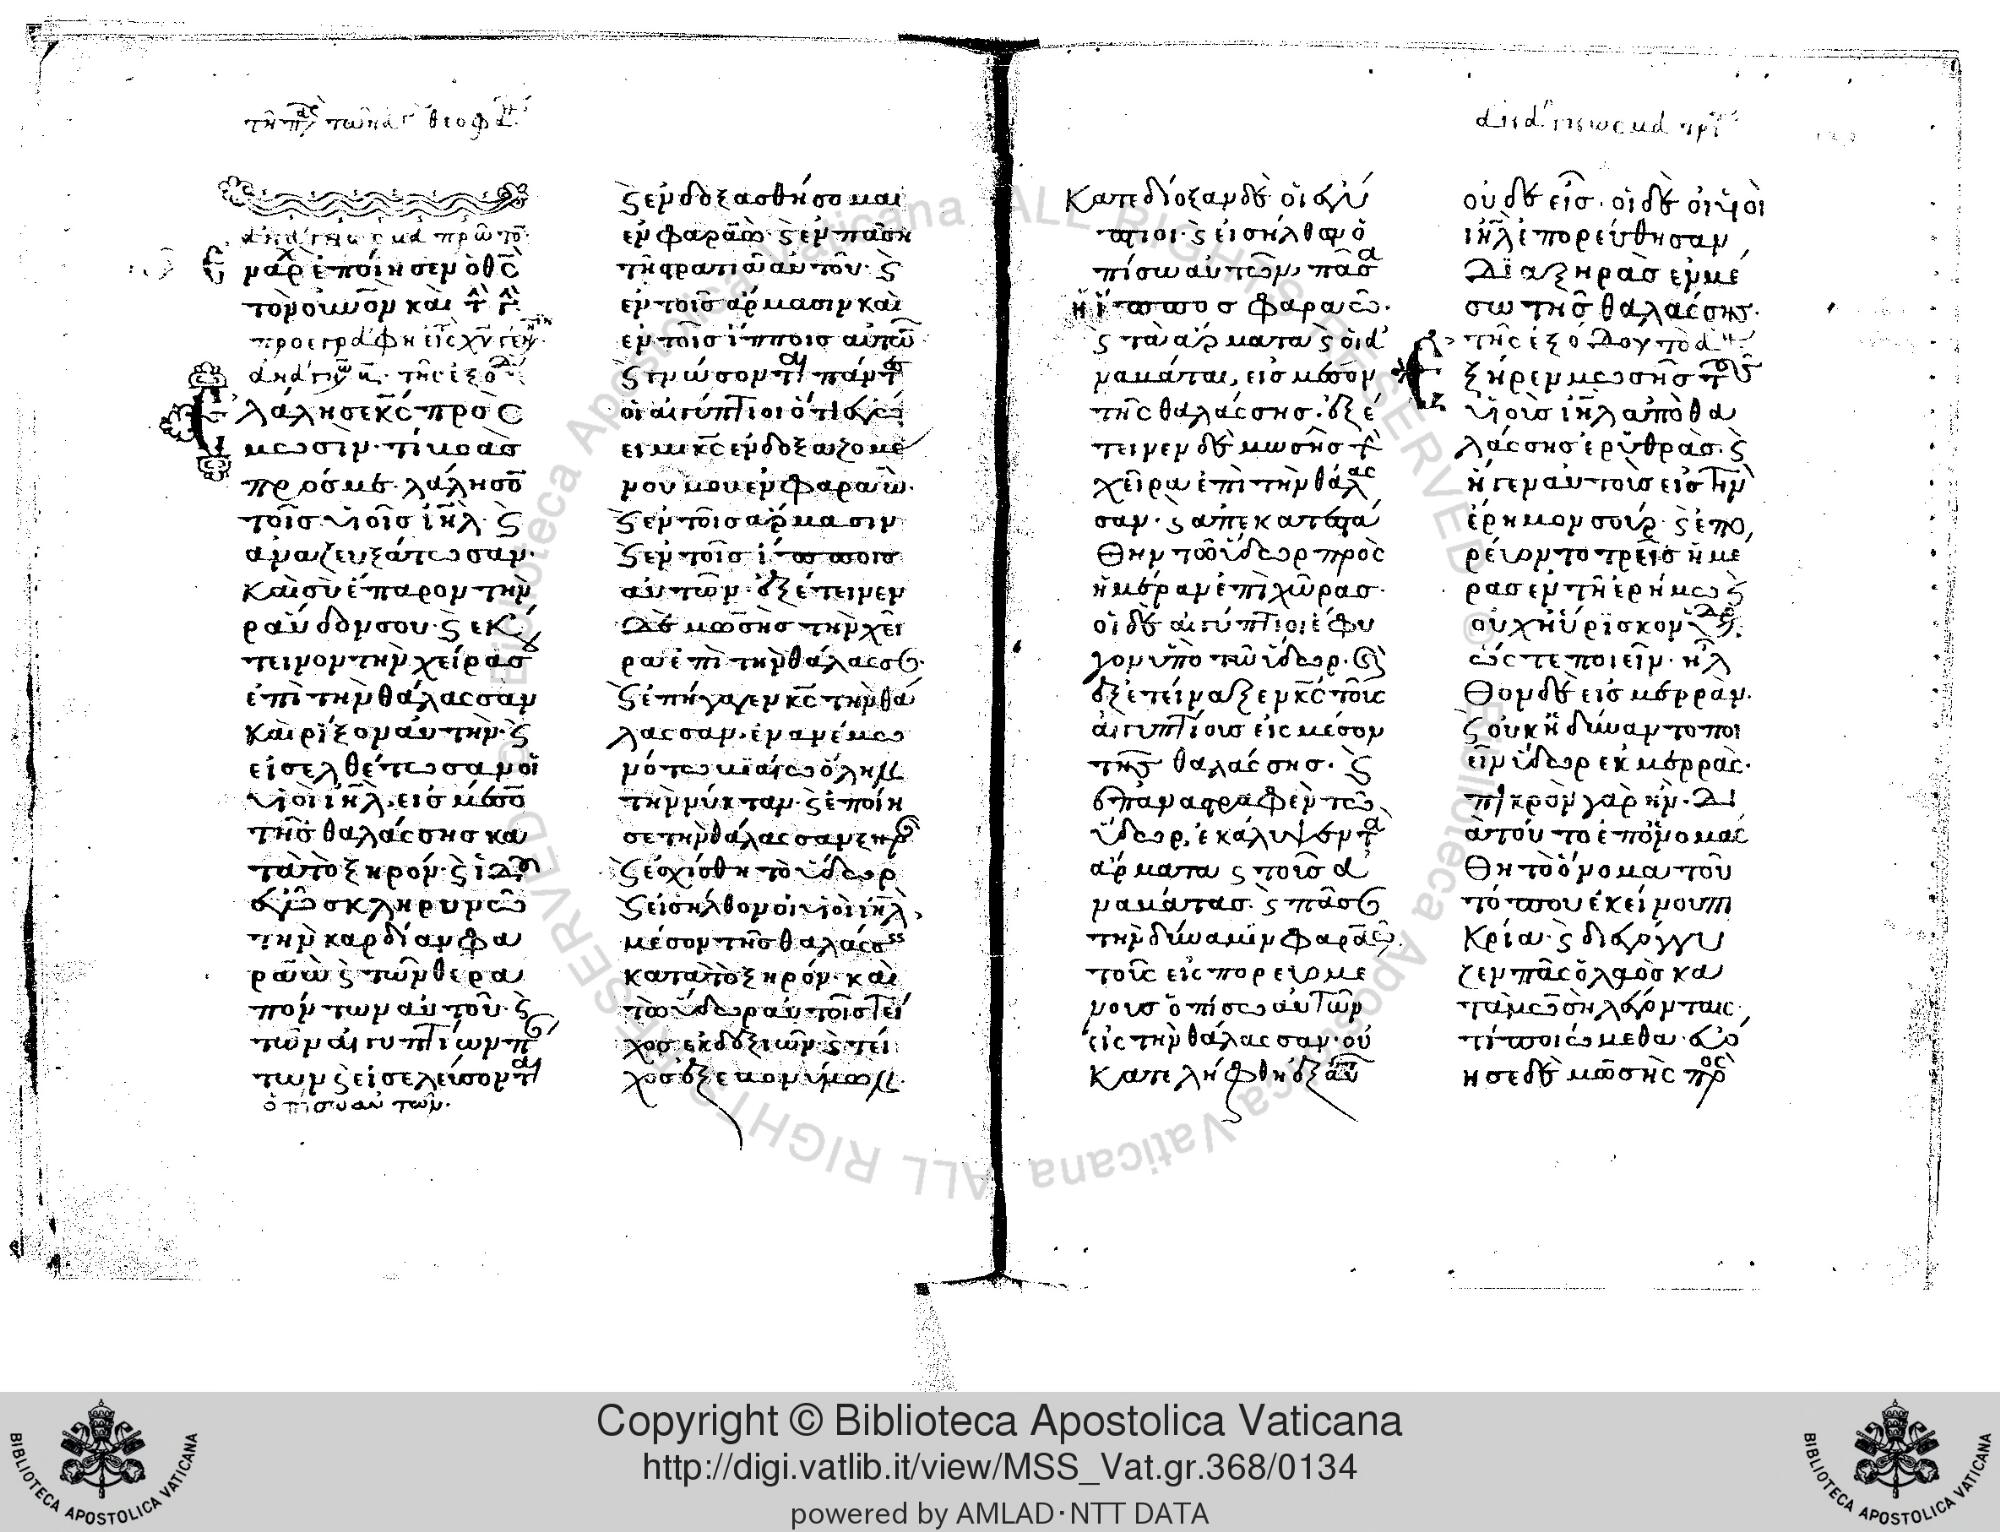 ἀνάγνωσμα πρῶτον
ἐν ἀρχῆ ἐποίησεν ὁ θς
τὸν οὐνον καὶ τ γ
προεγράφη εἰς
ἀνάγνωσμα τῆς ἐξόδ
Ἐλάλησε κς πρὸς
μωσὶν· τί βοᾶς
πρός με· λάλησο
τοῖς υἱοῖς ἰηλ· ϛ
ἀναζευξάτωσαν·
καὶ σὺ ἔπαρον τὴν
ράβδον σου· ϛ ἐκ
τεινον τὴν χείρας
ἐπὶ τὴν θάλασσαν
καὶ ρίξον αὐτὴν· ϛ
εἰσελθέτωσαν οἱ
υἱοὶ ἰηλ· εἰς μέσο
τῆς θαλάσσης κα
τὰ τὸ ξηρόν· ϛ ἰδοὺ
ἐγὼ σκληρυνῶ
τὴν καρδίαν φα
ραῶ ϛ τῶν θερα
πόντων αὐτοῦ· ϛ
τῶν αἰγυπτίων π
των ϛ εἰσελεύσονται
ὀπίσω αὐτῶν·
ϛ ἐνδοξασθήσομαι
ἐν φαραὼ· ϛ ἐν πάση
τῆ στρατιᾶ αὐτοῦ· ϛ
ἐν τοῖς ἅρμασιν καὶ
ἐν τοῖς ἵπποις αὐτῶ
ϛ γνώσονται πάντες
οἱ αἰγύπτιοι ὅτι ἐγώ
εἰμι κς ἐνδοξαζομέ
νου μου ἐν φαραῶ·
ϛ ἐν τοῖς ἅρμασιν
ϛ ἐν τοῖς ἵπποις
αὐτῶν· ἐξέτεινεν
δὲ μωσῆς τὴν χεῖ
ρα ἐπὶ τὴν θάλασσ·
ϛ ἐπήγαγεν κς τὴν θά
λασσαν· ἐν ἀνέμω
νότω βιαίω ὅλην
τὴν νύκταν· ϛ ἐποίη
σε τὴν θάλασσαν ξηρ
ϛ ἐσχίσθη τὸ ὕδωρ
ϛ εἰσῆλθον οἱ υἱοὶ ἰηλ
μέσον τῆς θαλάσσης
κατὰ τὸ ξηρόν· καὶ
τὸ ὕδωρ αὐτοῖς τεῖ
χος ἐκ δεξιῶν· ϛ τεῖ
χος ἐξ εὐωνύμων·
ἀνάγνωσμα πρ
κατεδίοξαν δὲ οἱ αἰγύ
πτιοι· ϛ εἰσῆλθαν ὀ
πίσω αὐτῶν· πᾶσα
ἡ ἵππος φαραῶ·
ϛ τὰ ἅρματα ϛ οἱ ἀ
ναμάται, εἰς μέσον
τῆς θαλάσσης· ἐξέ
τεινεν δὲ μωσῆς τ
χεῖρα ἐπὶ τὴν θάλασ
σαν· ϛ ἀπεκατεστά
θην τὸ ὕδωρ πρὸς
ἡμέραν ἐπὶ χώρας·
οἱ δὲ αἰγύπτιοι ἔφυ
γον ὑπὸ τῶ ὕδωρ· ϛ
ἐξετίναξεν κς τοὺς
αἰγυπτίους εἰς μέσον
τῆς θαλάσσης· ϛ
ἐπαναστραφὲν τὼ
ὕδωρ, ἐκάλυψεν τὰ
ἅρματα ϛ τοῖς ἀ
ναμάτας· ϛ πᾶσ
τὴν δύναμιν φαραώ
τοὺς εἰσπορευομέ
νους ὀπίσω αὐτῶν
εἰς τὴν θάλασσαν· οὐ
κατελήφθη ἐξ αὐ
οὐδὲ εἷς· οἱ δὲ οἱ υἱοὶ
ἰηλ ἐπορεύθησαν
διὰ ξηρᾶς ἐν μέ
σω τῆς θαλάσσης·
τῆς ἐξόδου τὸ ἀν
Ἐξῆρεν μωσῆς τοὺς
υἱοὺς ἰηλ ἀπὸ θα
λάσσης ἐρυθρᾶς· ϛ
ἤγεν αὐτοὺς εἰς τὴν
ἔρημον σούρ· ϛ ἐπο
ρεύοντο τρεῖς ἡμέ
ρας ἐν τῆ ἐρήμω ϛ
οὐχ ηὕρισκον ὕδωρ
ὥστε ποιεῖν· ἦλ
θον δὲ εἰς μερρὰν·
ϛ οὐκ ἠδύναντο ποι
εῖν ὕδωρ ἐκ μερρᾶς·
πικρὸν γὰρ ἦν· δι
ὰ τοῦτο ἐπονομάσ
θη τὸ ὄνομα τοῦ
τόπου ἐκείνου πι
κρία· ϛ διεγόγγυ
ζεν πᾶς ὁ λαὸς κα
τὰ μωσῆ λέγοντες·
τί ποιώμεθα· ἐβό
ησε δὲ μωσῆς πρὸς
Copyright © Biblioteca Apostolica Vaticana
http://digi.vatlib.it/view/MSS_Vat.gr.368/0134
powered by AMLAD·NTT DATA